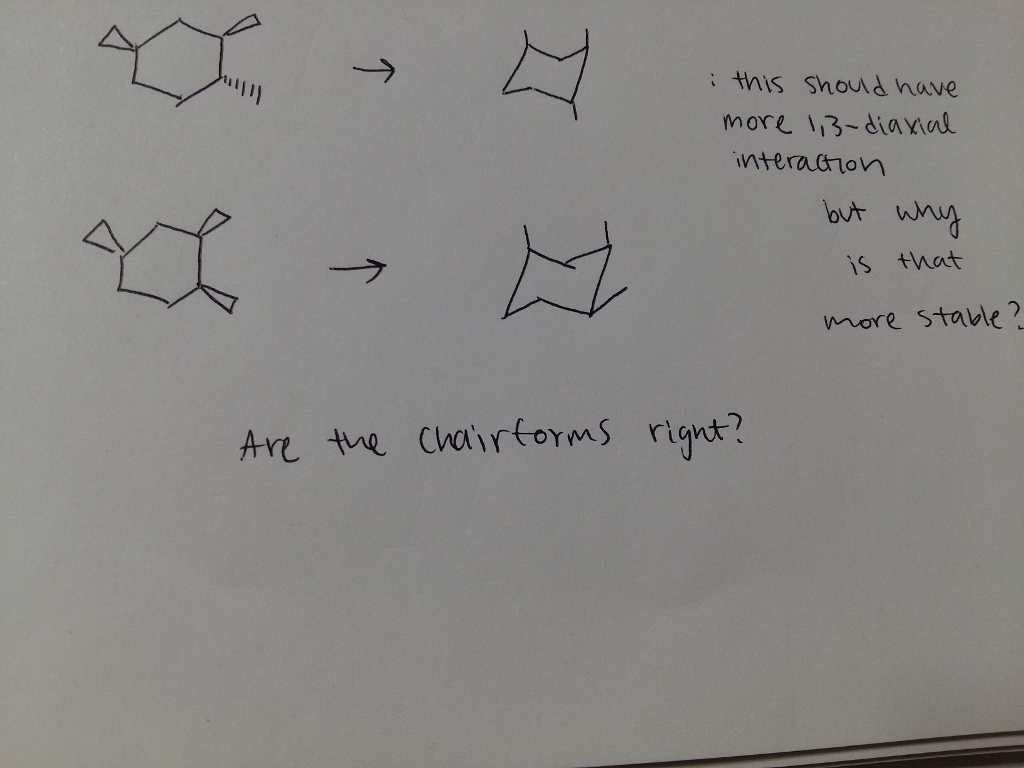 : this should have
more 1,3-diaxial
interaction
but why
is that
more stable?
Are the chairforms right?